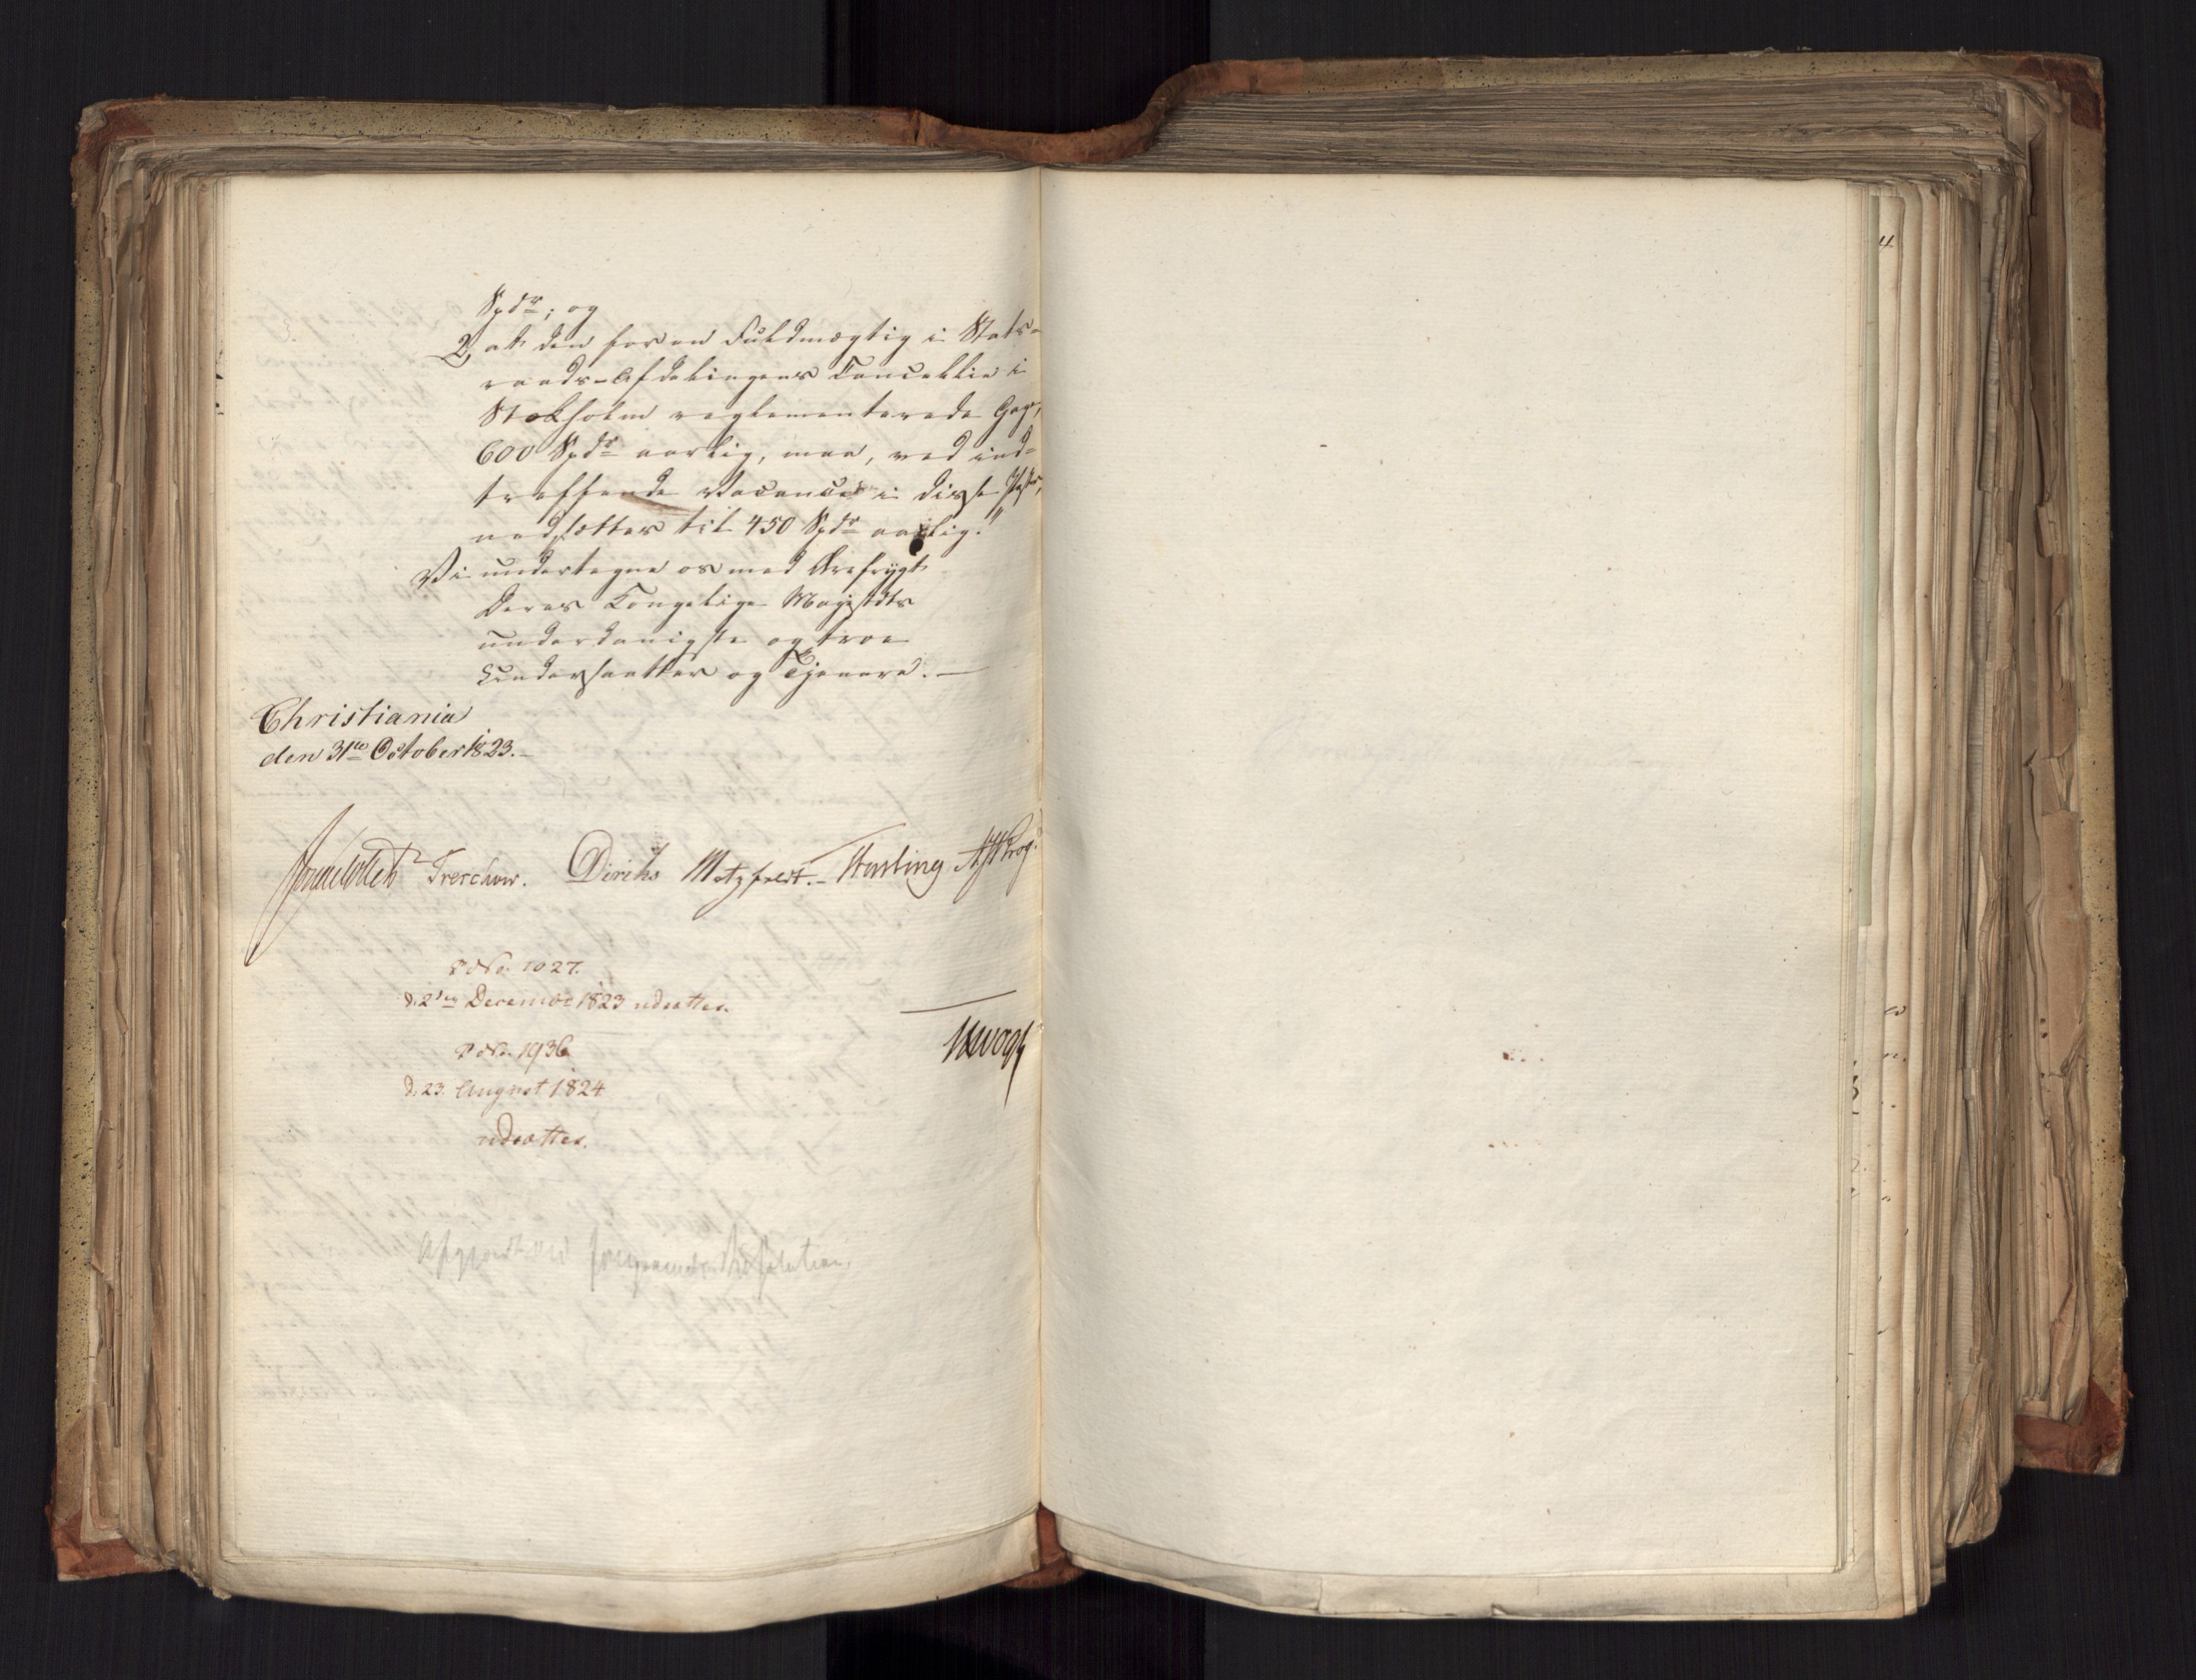 Spdr; og
2, at den for en Fuldmægtig i Stats-
raads-Afdelingens Cancellie i
Stokholm reglementerede Gage,
600 Spdr aarlig, maa, ved ind-
treffende Vacancer i disse Poster,
nedsættes til 450 Spdr aarlig."
Vi undertegne os med Ærefrygt
Deres Kongelige Majestæts
underdanigste og troe
Undersaatter og Tjenere. —
Christiania
den 31te October 1823. —
Jonas Collett Treschow. Diriks Motzfeldt. — Fasting
P No. 1027.
d. 2den Decembr 1823 udsættes.
HWogt
P No. 1936
d. 23. August 1824
udsættes.
Afgjort ved foregaaende Resolution.